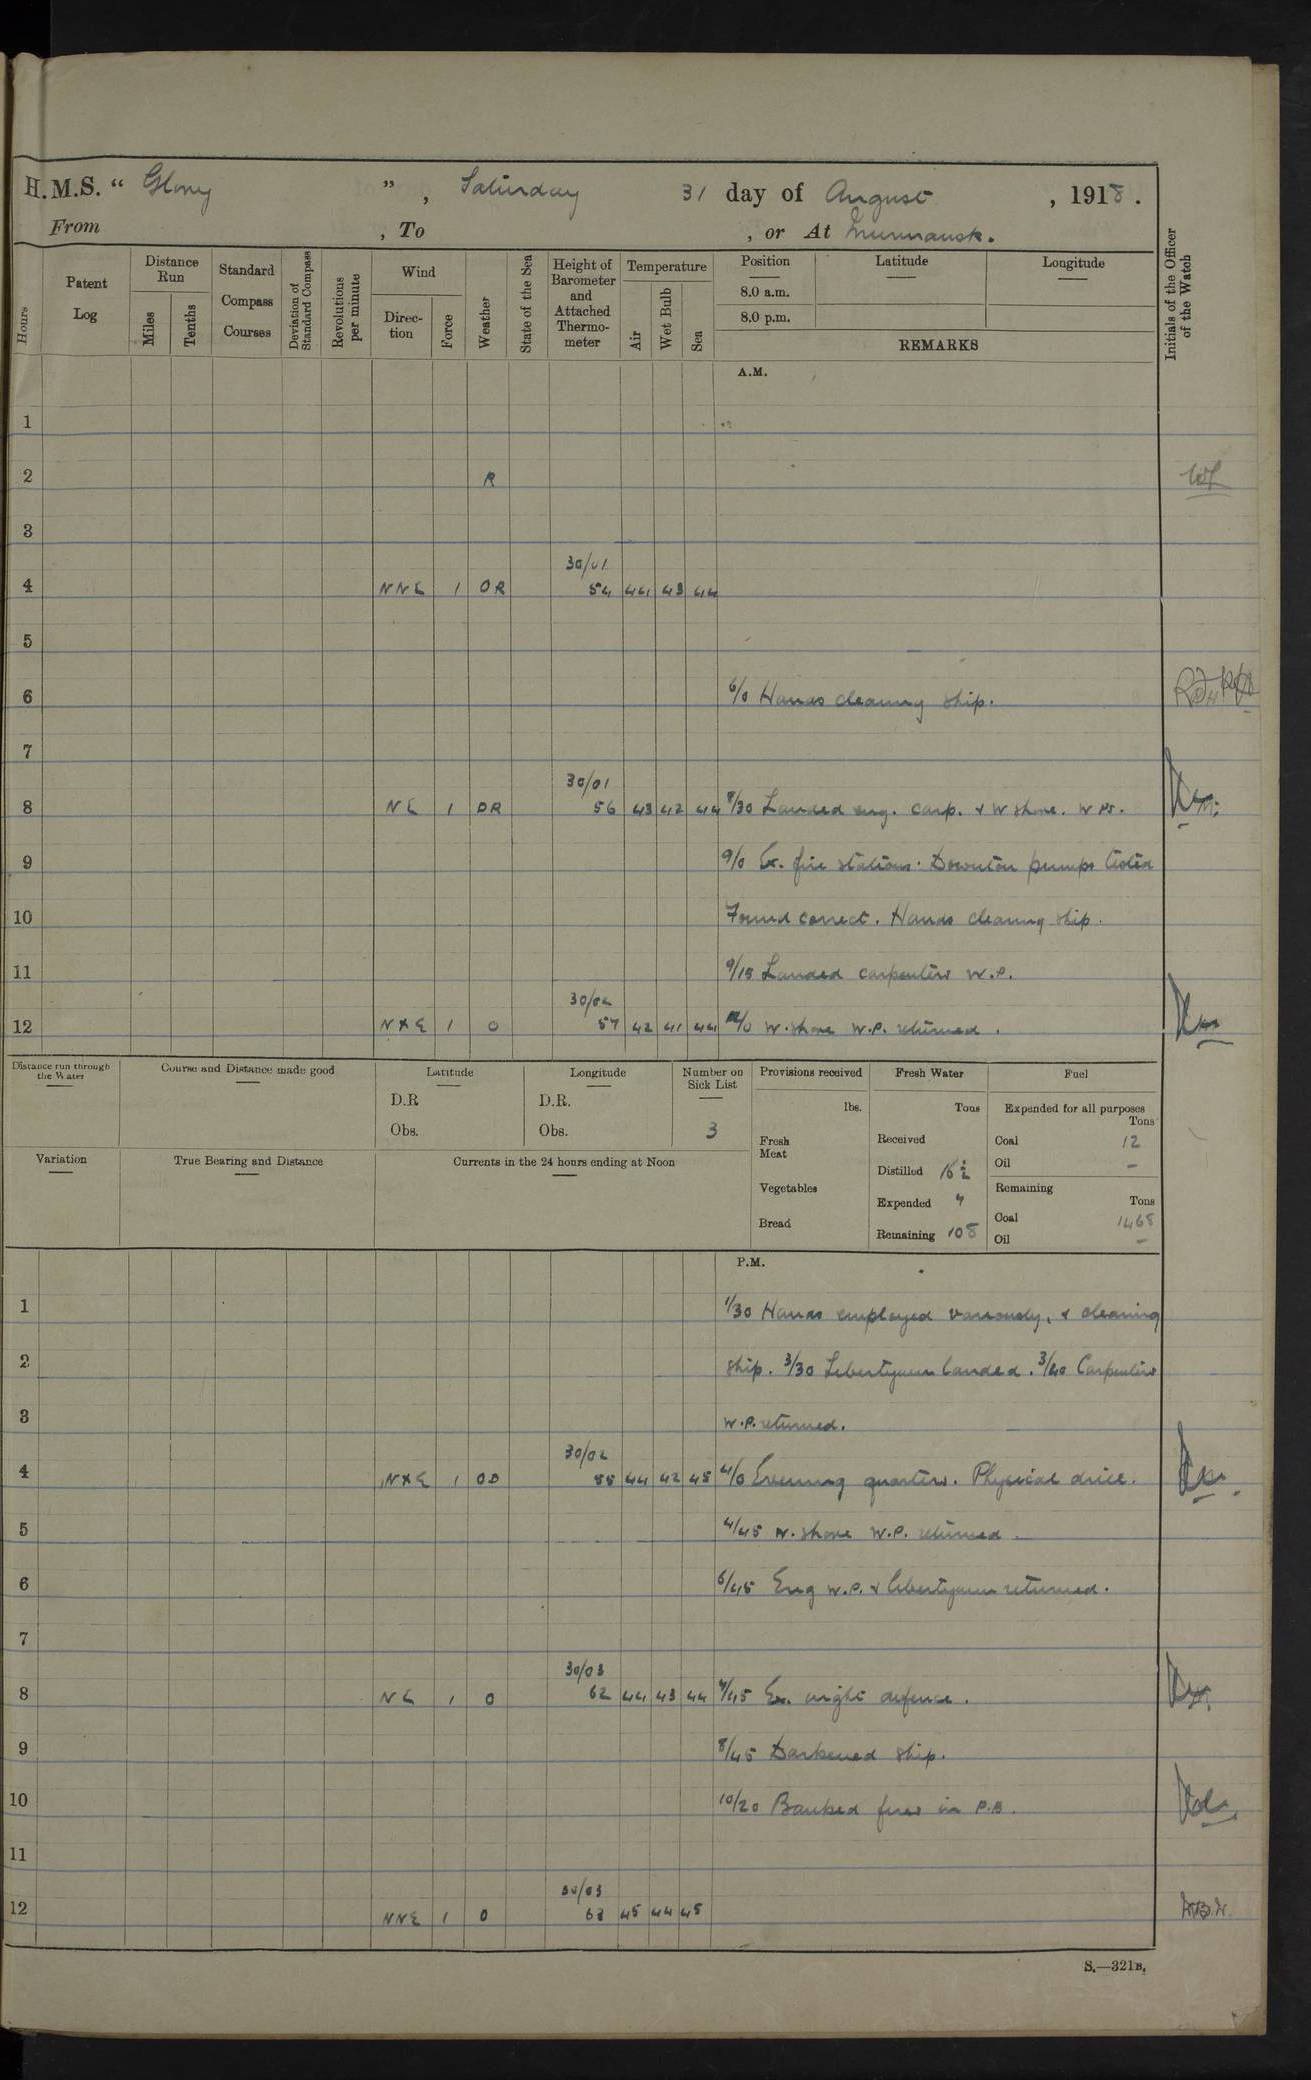 H.M.S. “ Glory ”, Saturday 31 day of August , 1918.
From , To , or At Murmansk.
Hours
Patent Log
Distance Run
Miles
Tenths
Standard Compass Courses
Deviation of Standard Compass
Revolutions per minute
Wind
Direc-tion
Force
Weather
State of the Sea
Height of Barometer and Attached Thermo-meter
Temperature
Air
Wet Bulb
Sea
Position
8.0 a.m.
8.0 p.m.
Latitude
Longitude
REMARKS
Initials of the Officer of the Watch
A.M.
1
2 R
3
30/01
4 NNE 1 OR 54 44 43 44
5
6 6/0 Hands cleaning ship.
7
30/01
8 NE 1 OR 56 43 42 44 8/30 Landed eng. carp. & W shore. W Ps.
9 9/0 Ex. fire stations. Downton pumps tested
10 Found correct. Hands cleaning ship.
11 9/15 Landed carpenters W.P.
30/02
12 NXE 1 O 57 42 41 44 12/0 W. shore W.P. returned.
Distance run through the Water
Course and Distance made good
Latitude
D.R
Obs.
Longitude
D.R.
Obs.
Number on Sick List
3
Provisions received
lbs.
Fresh Meat
Vegetables
Bread
Fresh Water
Tons
Received
Distilled 16½
Expended 7
Remaining 108
Fuel
Expended for all purposes
Tons
Coal 12
Oil –
Remaining
Tons
Coal 1468
Oil –
Variation
True Bearing and Distance
Currents in the 24 hours ending at Noon
P.M.
1 1/30 Hands employed variously, & cleaning
2 ship. 3/30 Libertymen landed. 3/40 Carpenters
3 W.P. returned.
30/02
4 NXE 1 OD 58 44 42 45 4/0 Evening quarters. Physical drill.
5 4/45 W. shore W.P. returned.
6 6/45 Eng W.P. & libertymen returned.
7
30/03
8 NE 1 O 62 44 43 44 7/45 Ex. night defence.
9 8/45 Darkened ship.
10 10/20 Banked fires in P.B.
11
30/03
12 NNE 1 O 63 45 44 45
S.—321B.